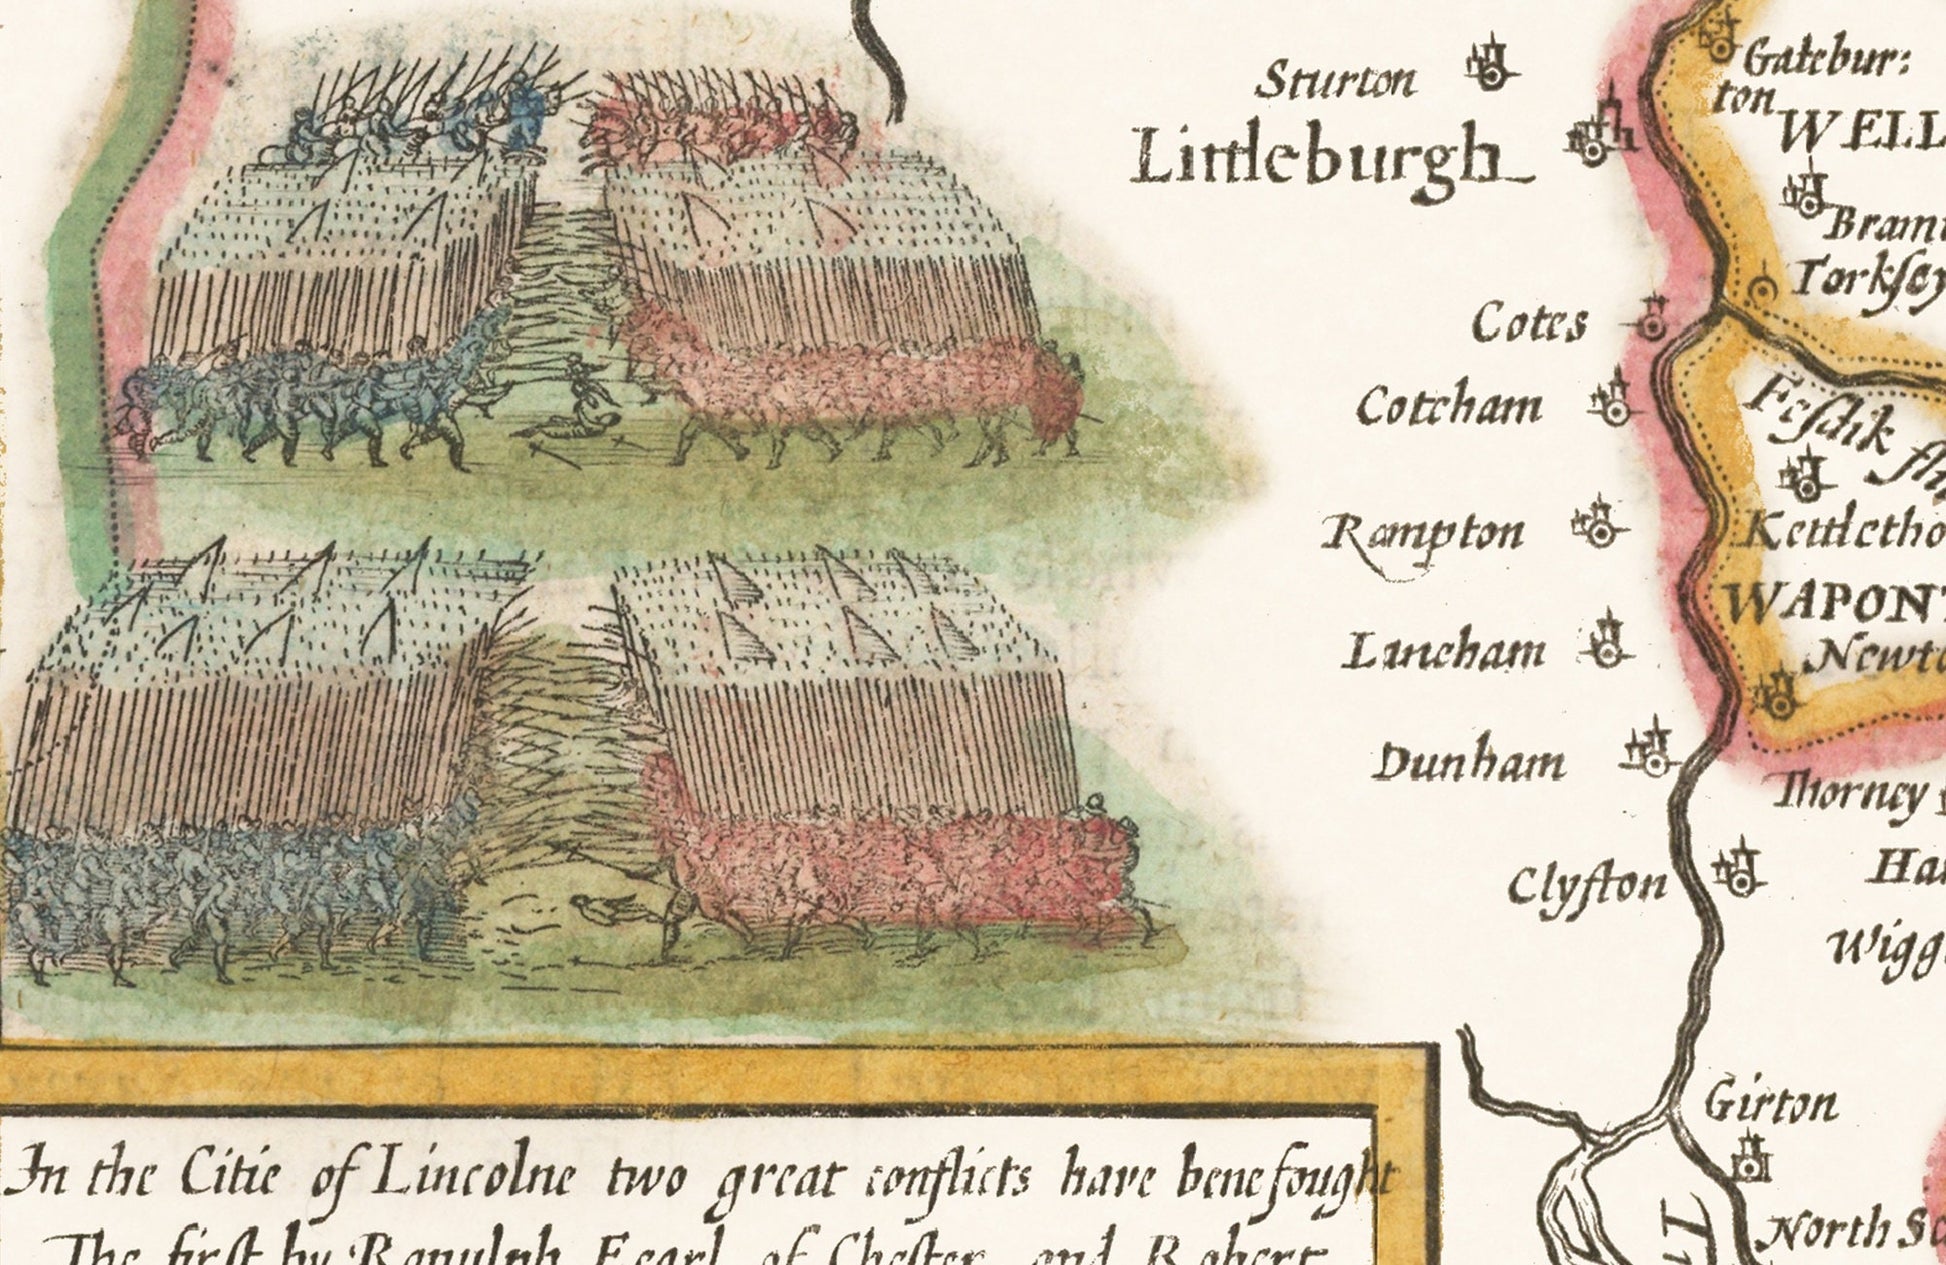 Sturton
Littleburgh
Cotes
Cotcham
Rampton
Laneham
Dunham
Clyfton
Girton
Gatebur:
ton
WELL
Torksey
Kettletho
WAPONT
Newto
Thorney
Ha
Wigg
North Sc
In the Citie of Lincolne two great conflicts have bene fought
The first by Ranulph Eearl of Chester and Robert